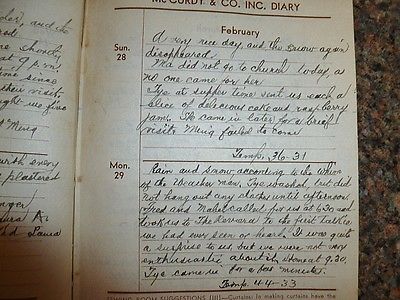 der, and to
McCURDY & CO. INC. DIARY
February
Sun.
28
A very nice day, and the snow again
disappeared.
Ma did not go to church today, as
no one came for her
Tye at supper time sent us each a
slice of delecious cake and raspberry
jam. He came in later for a brief
visit. Merig failed to come
Temp. 36-31
Mon.
29
Rain and snow, according to the whim
of the Weather man. Tye washed, but did
not hang out any clothes until afternoon.
Fred and Mabel called for us at 6:30 and
took us to The Revere. It is the first talkie
we had ever seen or heard. It was quite
a surprise to us, but we were not very
enthusiastic about it. Home at 9.30.
Tye came in for a few minutes.
Temp. 44-33
9 p.m.
time since
their visit.
us five
Merig
plastered
A.
and Laura
SEWING ROOM SUGGESTIONS (III)—Curtains: In making curtains have the